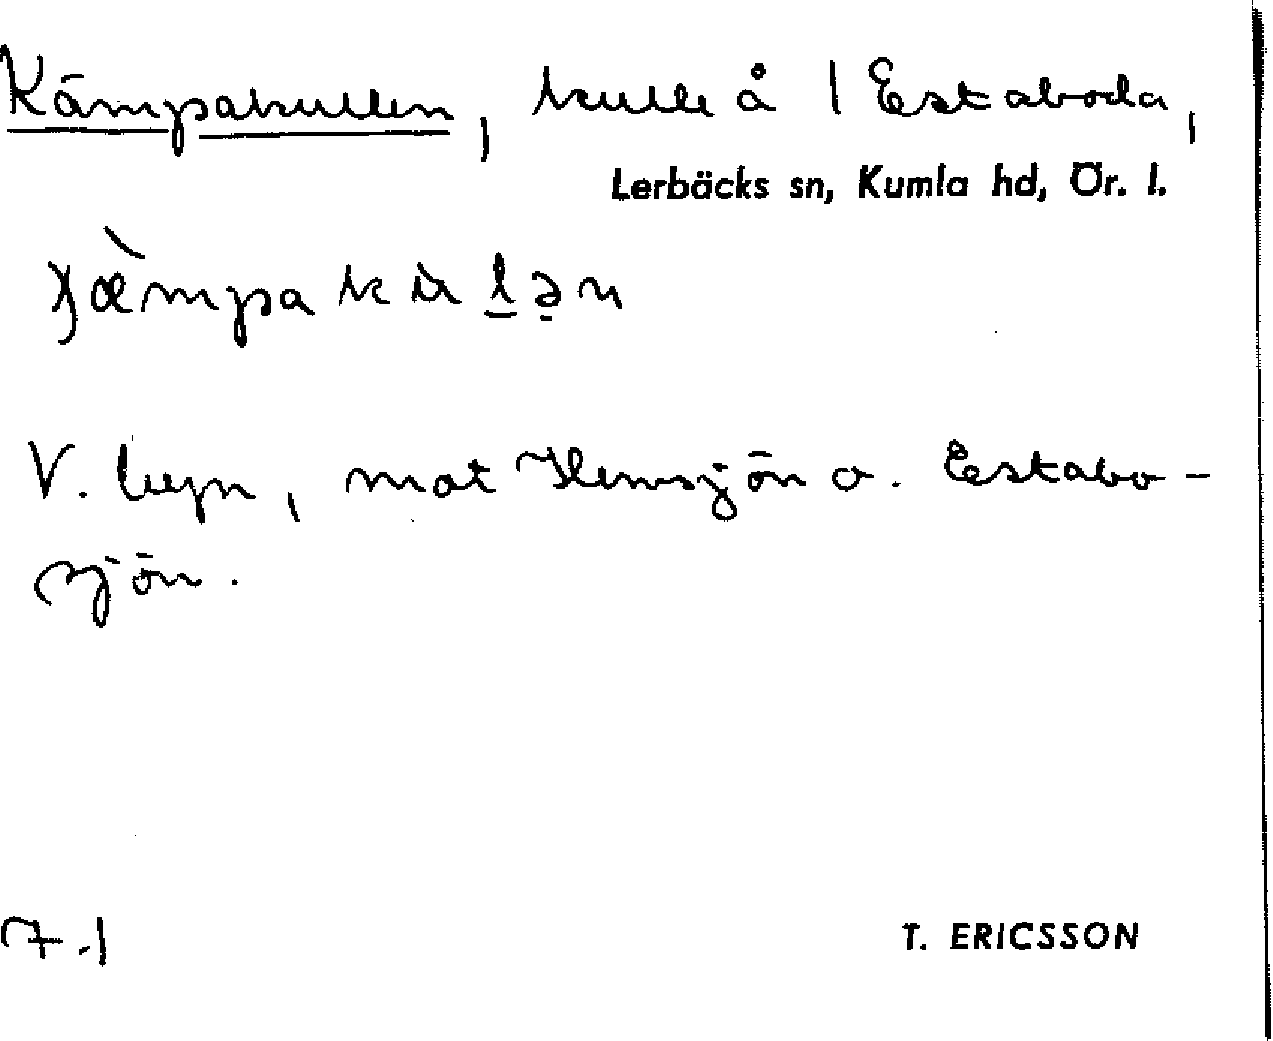 Kämpakullen, kulle å 1 Estaboda,
Lerbäcks sn, Kumla hd, Ör. l.
V. byn, mot Hemsjön o. Estabo-
sjön.
7.1
T. ERICSSON